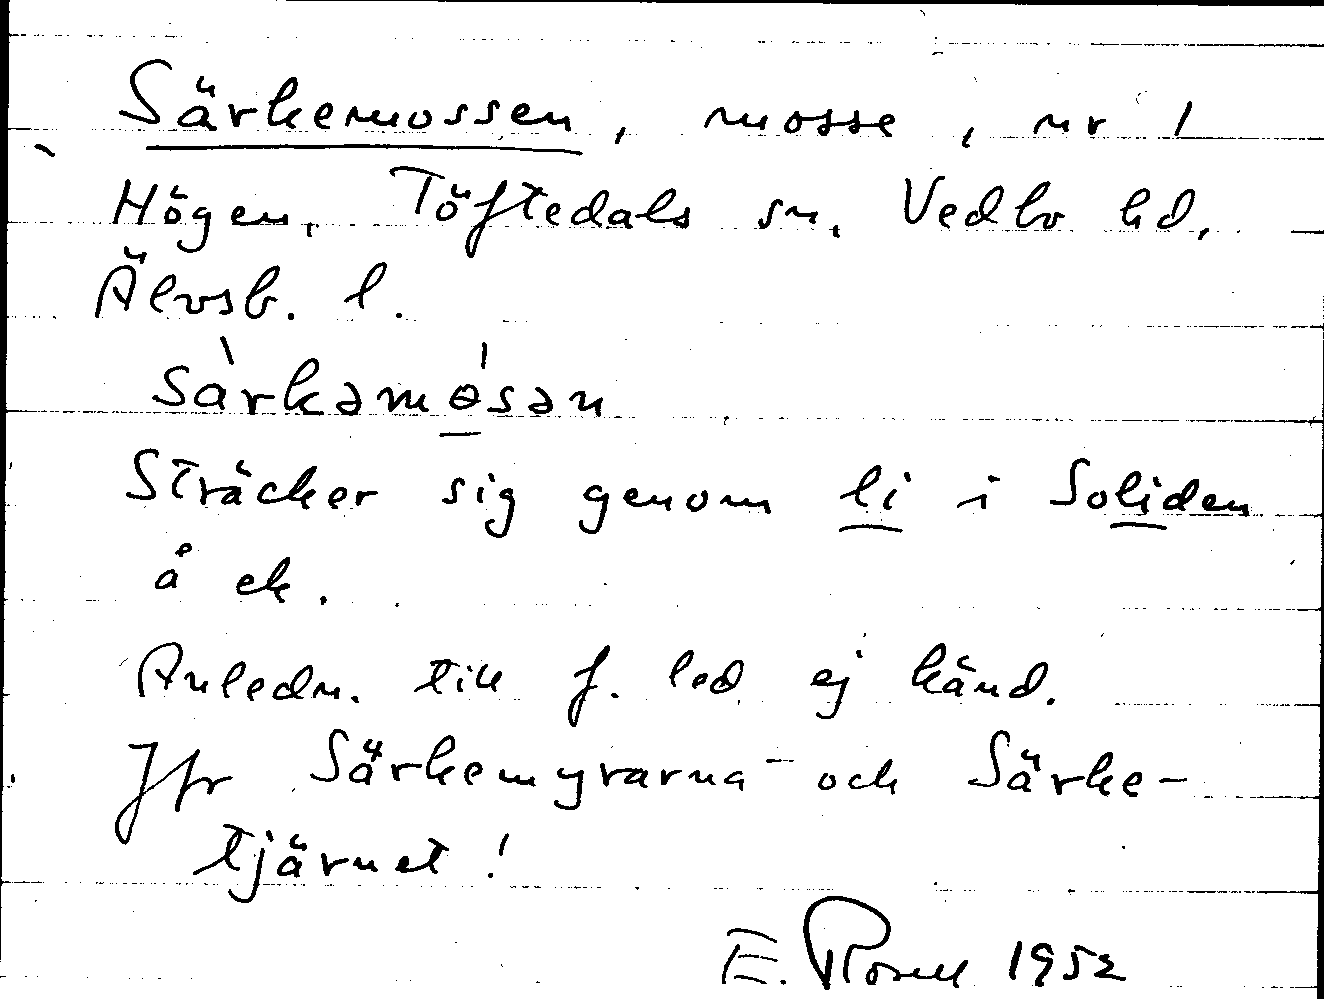 Särkemossen, mosse, nr 1
Högen, Töftedals sn, Vedbo hd,
Älvsb. l.
sàrkəmɵ́sən
Sträcker sig genom li i Soliden
å ek.
Anledn. till f. led ej känd.
Jfr Särkemyrarna och Särke-
tjärnet!
E. Rosell 1952